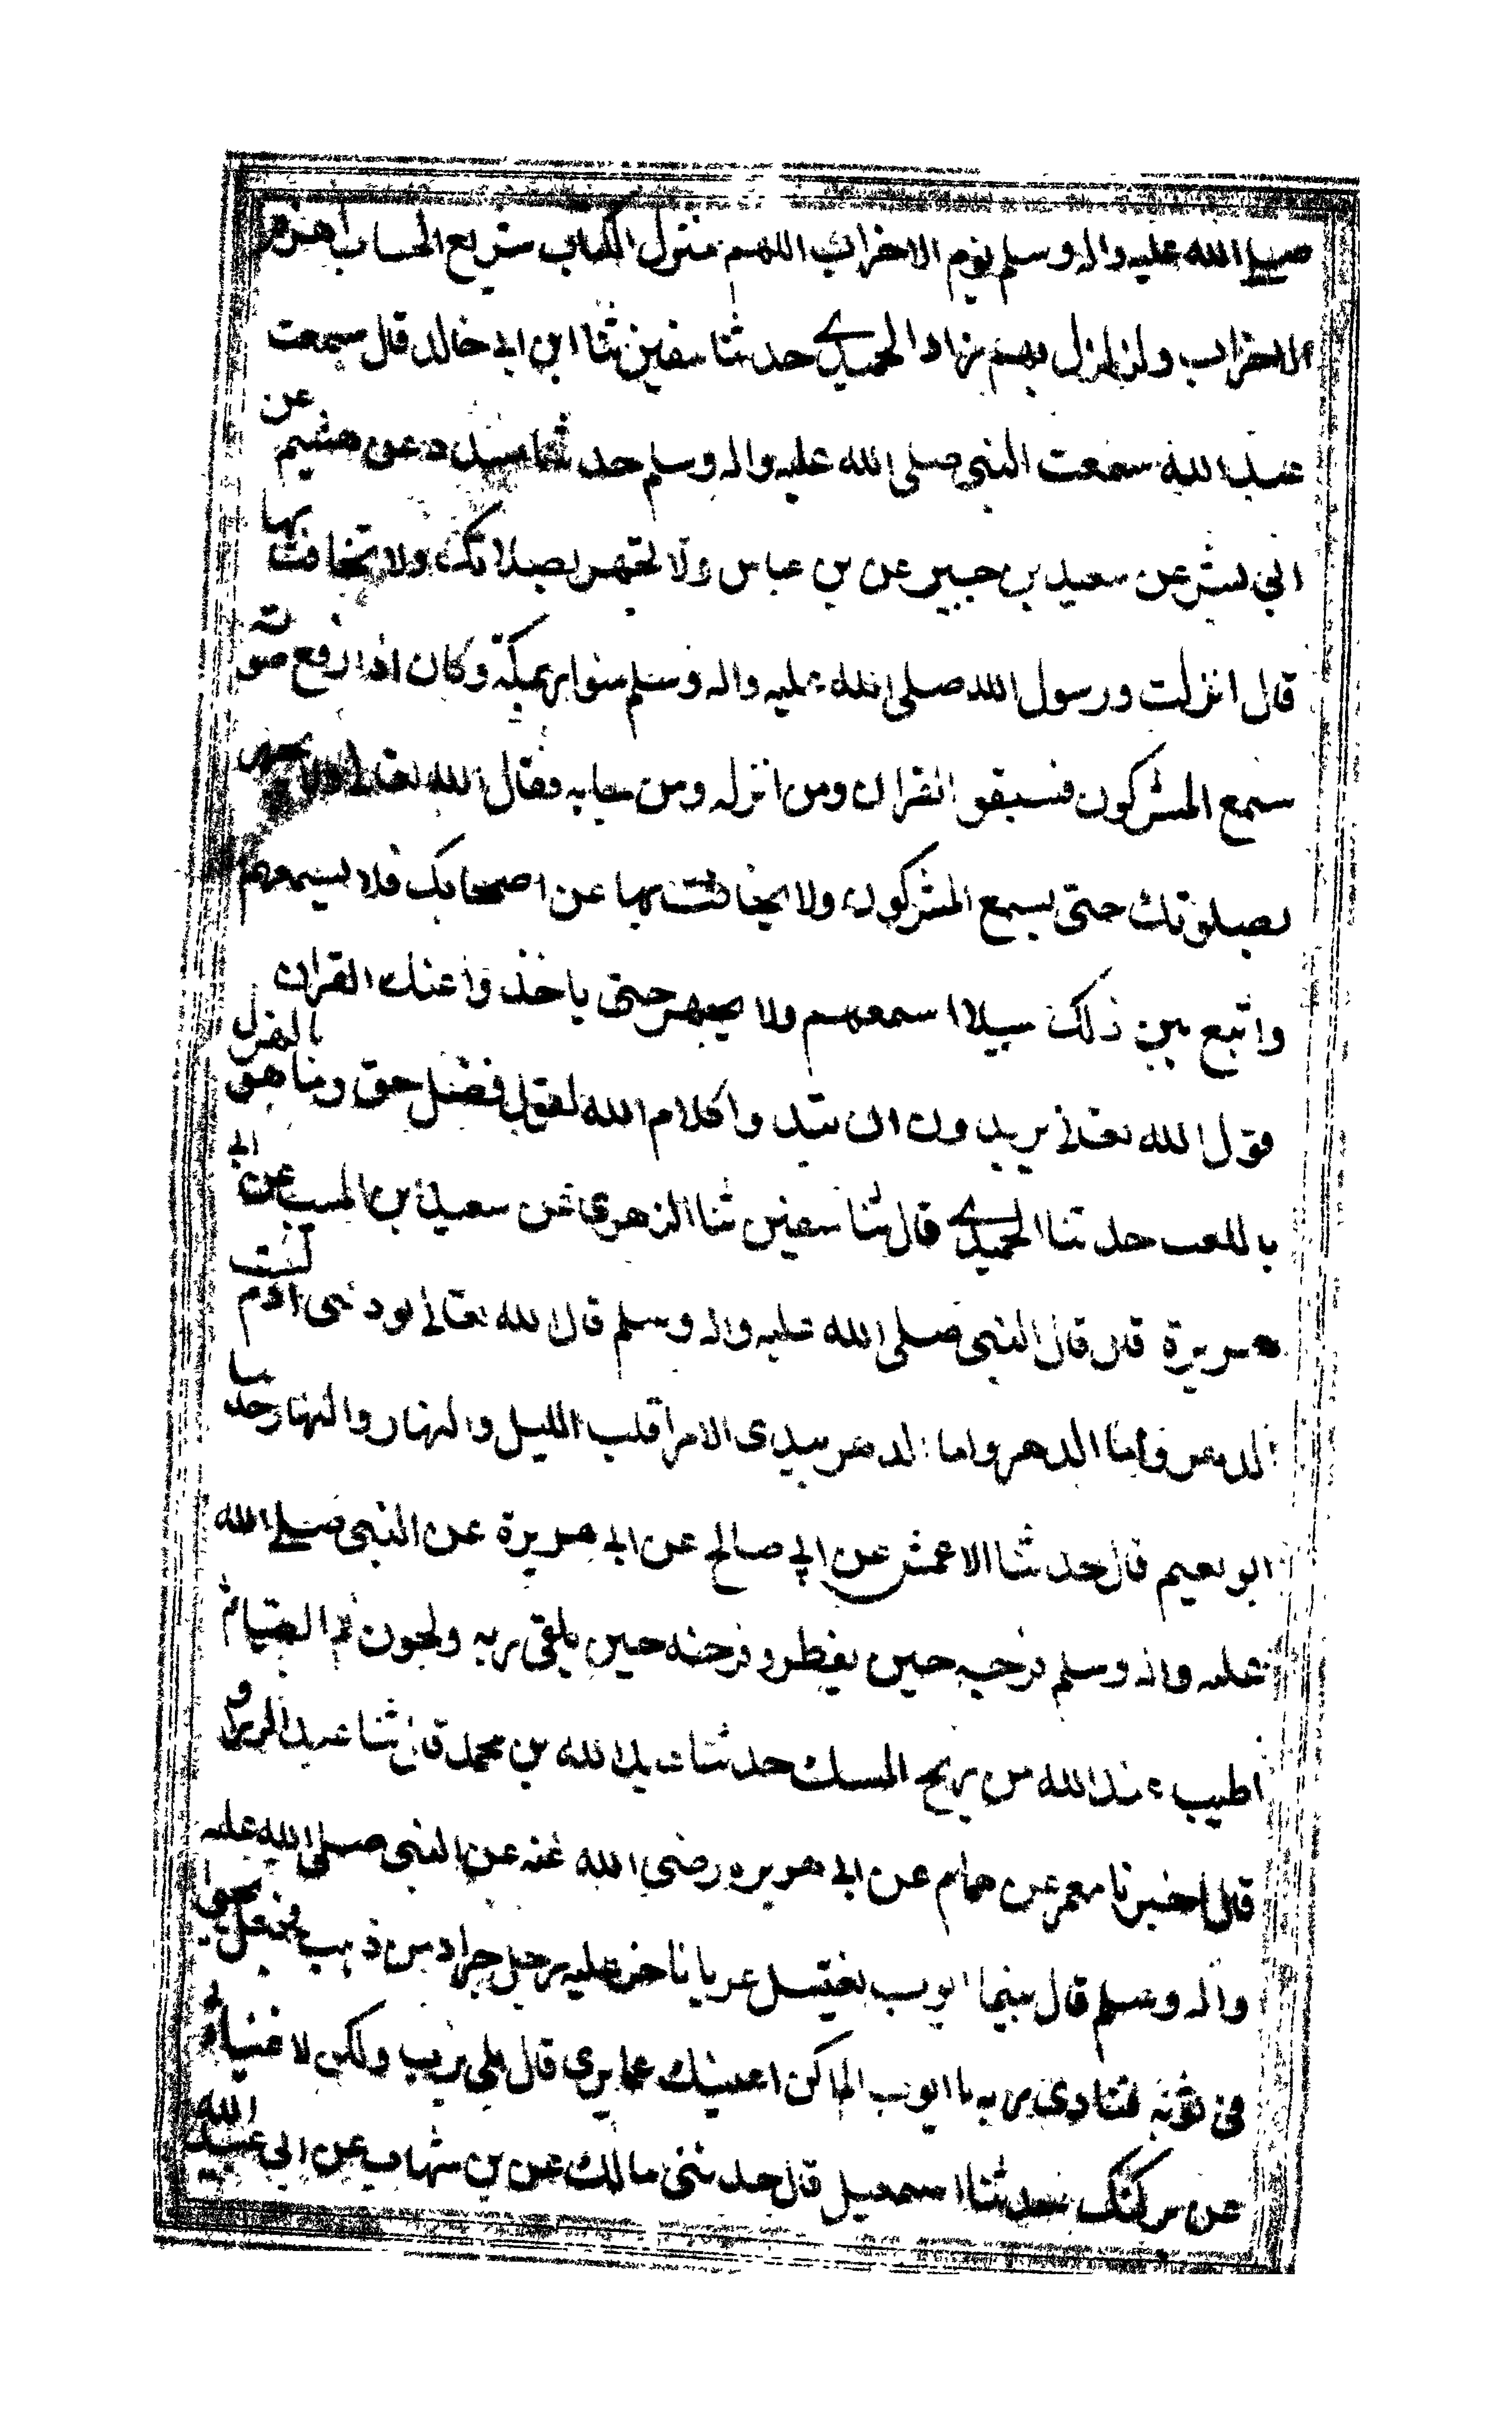 صلى الله عليه واله وسلم يوم الاحزاب اللهم منزل الكتاب سريع الحساب اهزم
الاحزاب وزلزل بهم زاد الحميدي حدثنا سفين ثنا ابن ابي خالد قال سمعت
عبد الله سمعت النبي صلى الله عليه واله وسلم حدثنا مسدد عن هشيم عن
ابي بشر عن سعيد بن جبير عن بن عباس ولا تجهر بصلاتك ولا تخافت بها
قال انزلت ورسول الله صلى الله عليه واله وسلم متوار بمكة وكان اذا رفع صوته
سمع المشركون فسبو القران ومن انزله ومن جابه فقال الله تعالى ولا تجهر
بصلوتك حتى يسمع المشركون ولا تخافت بها عن اصحابك فلا تسمعهم
واتبع بين ذلك سبيلا اسمعهم ولا تجهر حتى ياخذوا عنك القران
قول الله تعالى يريدون ان يبدلوا كلام الله لقول فصل حق وما هو بالهزل
باللعب حدثنا الحميدي قال ثنا سفين ثنا الزهري عن سعيد بن المسيب عن ابي
هريرة قال قال النبي صلى الله عليه واله وسلم قال الله تعالى يوذيني ادم يسب
الدهر وانا الدهر بيدي الامر اقلب الليل والنهار حدثنا
ابو نعيم قال حدثنا الاعمش عن ابي صالح عن ابي هريرة عن النبي صلى الله
عليه واله وسلم فرحة حين يفطر وفرحة حين يلقى ربه ولخلوف فم الصيام
اطيب عند الله من ريح المسك حدثنا عبد الله بن محمد قال ثنا عبد الرزاق
قال اخبرنا معمر عن همام عن ابي هريره رضي الله عنه عن النبي صلى الله عليه
واله وسلم قال بينما ايوب يغتسل عريانا خر عليه رجل جراد من ذهب فجعل يحثي
في ثوبه فنادى ربه يا ايوب الم اكن اغنيتك عما يرى قال بلى يرب ولكن لا غنى لي
عن بركتك حدثنا اسمعيل قال حدثني مالك عن بن شهاب عن ابي عبد الله